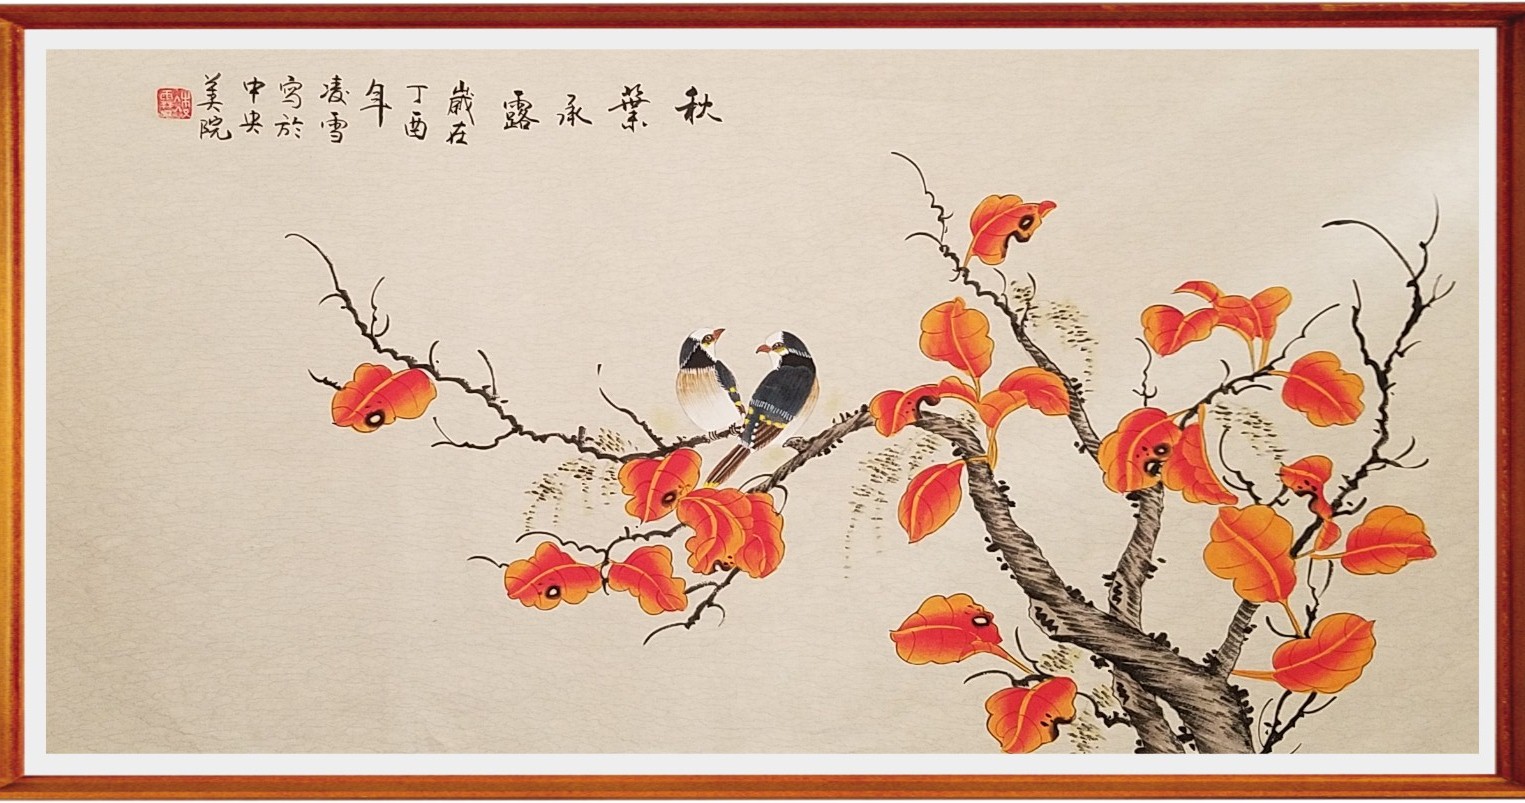 秋葉承露
歲在
丁酉
年
凌雪
寫於
中央
美院